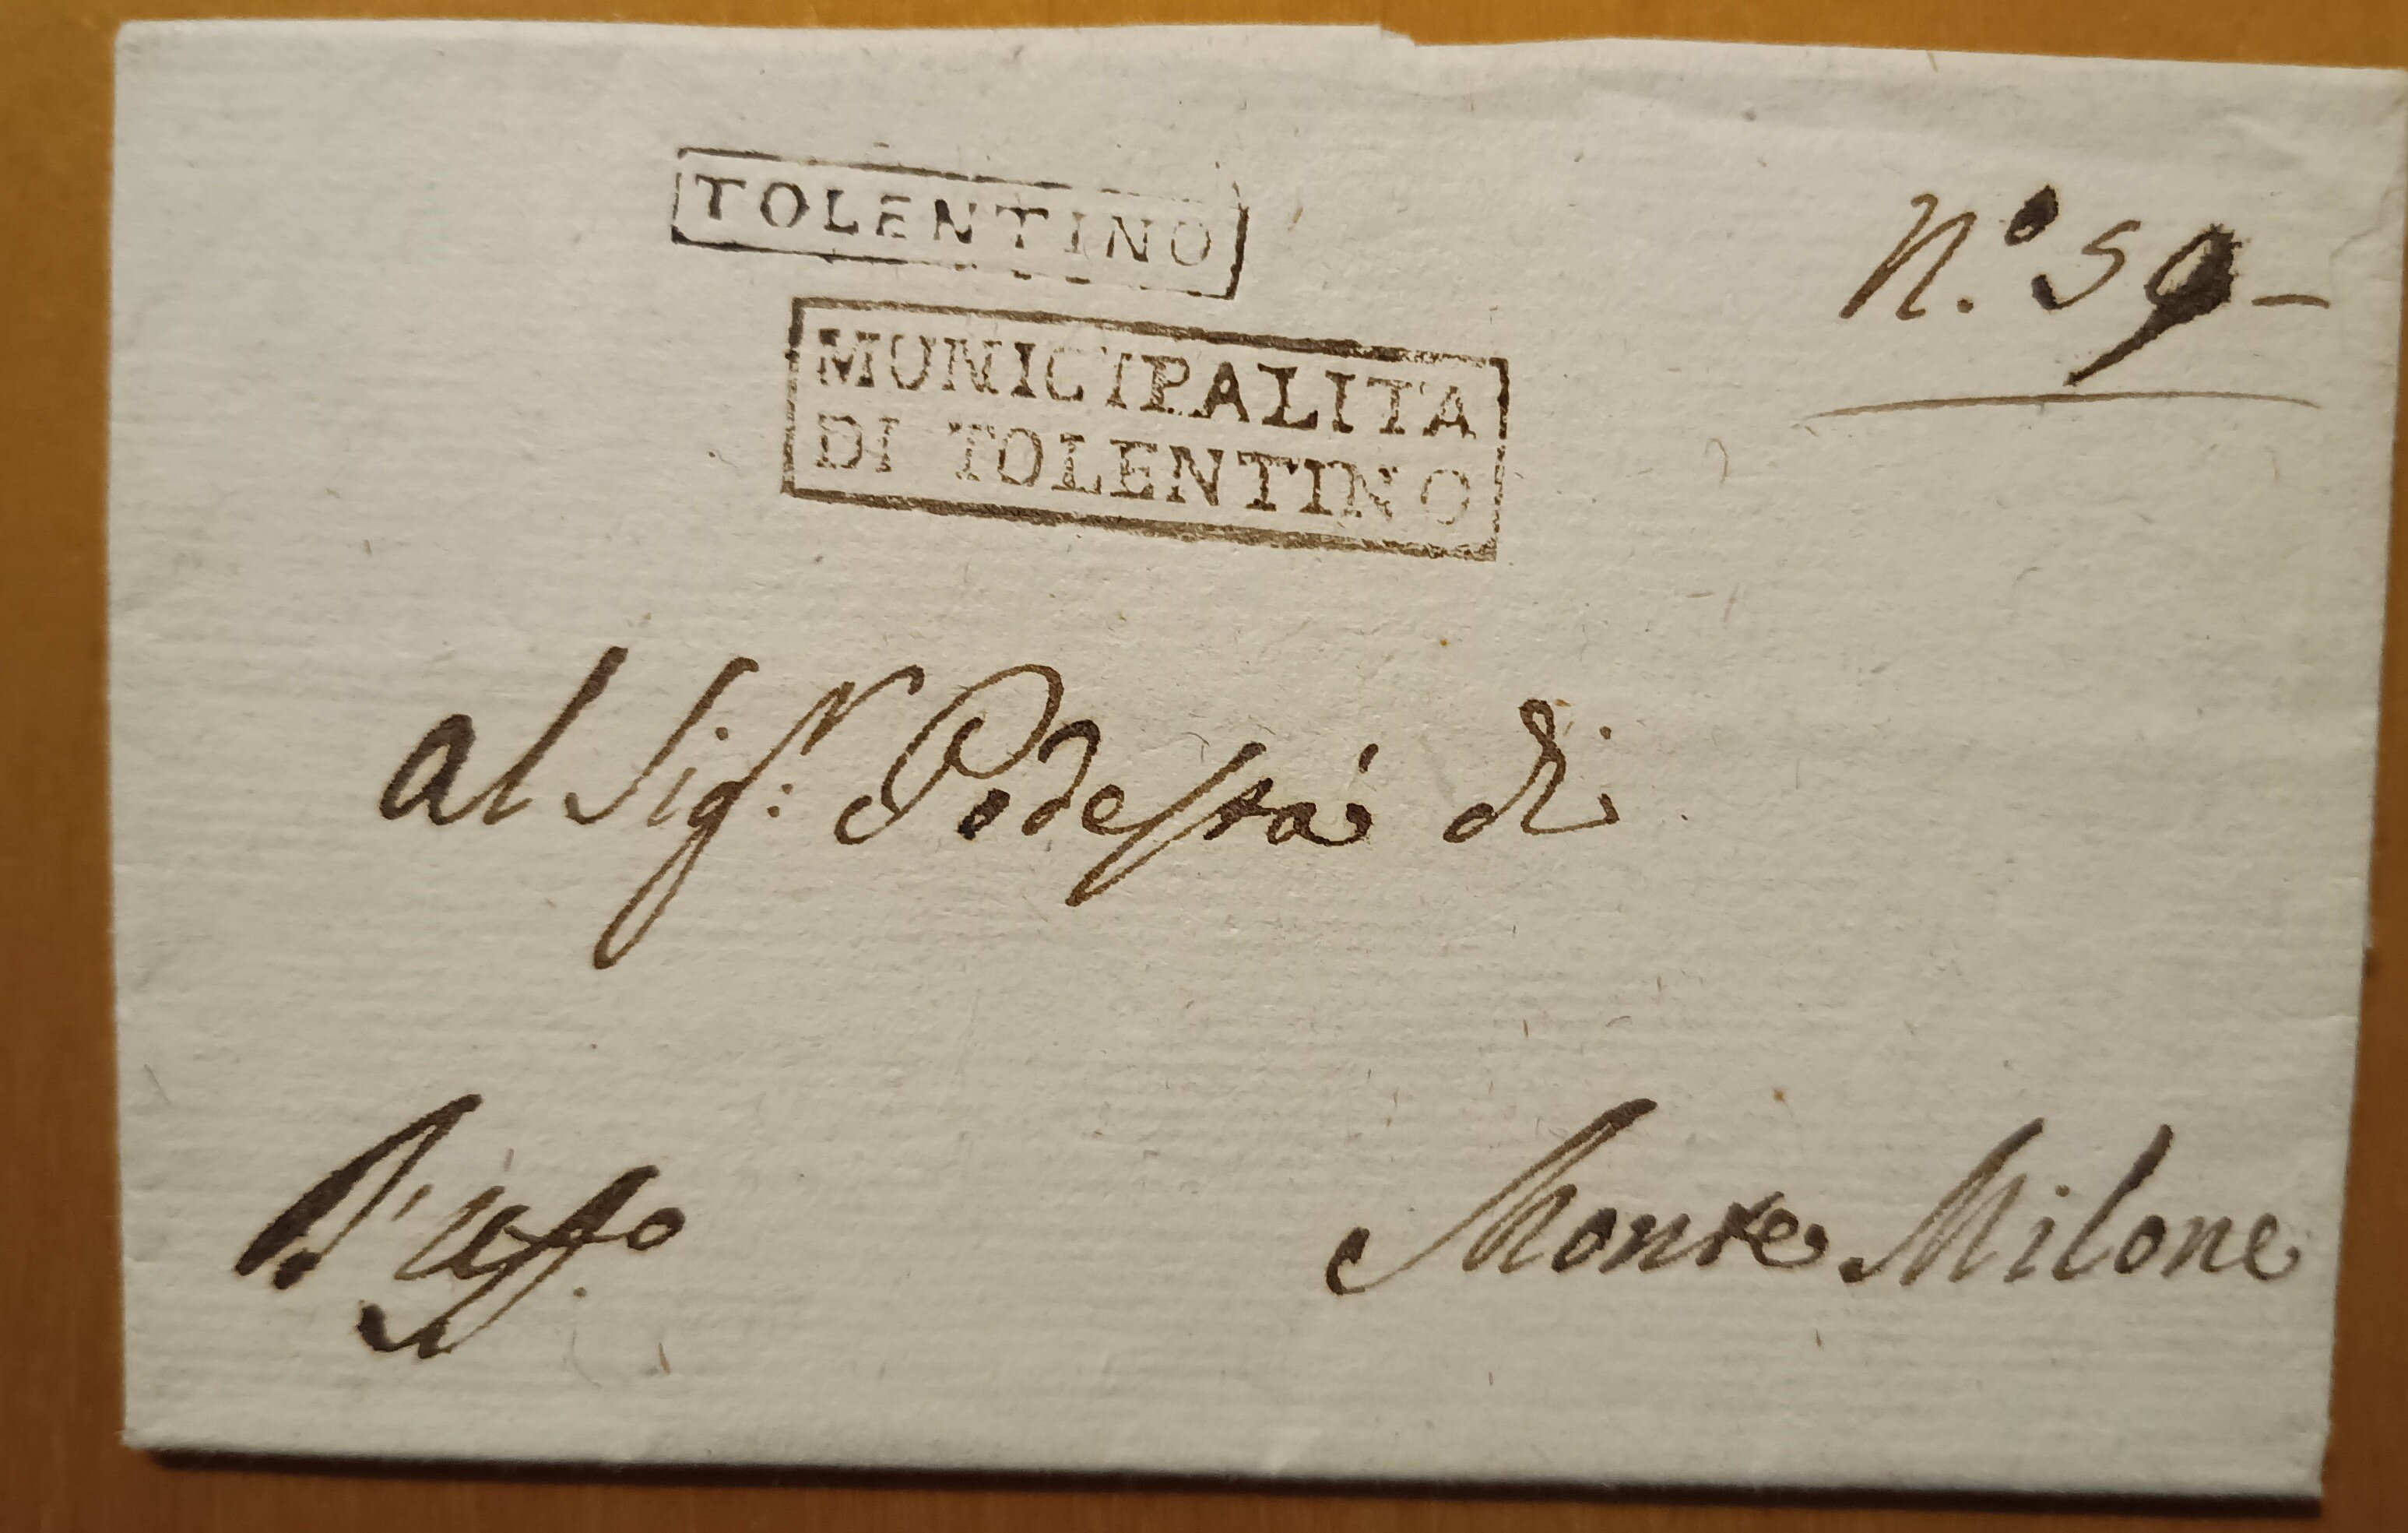 TOLENTINO
N.º 59-
MUNICIPALITA
DI TOLENTINO
al Sigr: Podestà di
D'uffo
Monte Milone